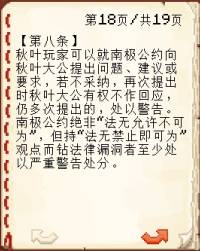 第18页/共19页
【第八条】
秋叶玩家可以就南极公约向
秋叶大公提出问题、建议或
要求，若不采纳，再次提出
时秋叶大公有权不作回应，
仍多次提出的，处以警告。
南极公约绝非“法无允许不可
为”，但持“法无禁止即可为”
观点而钻法律漏洞者至少处
以严重警告处分。